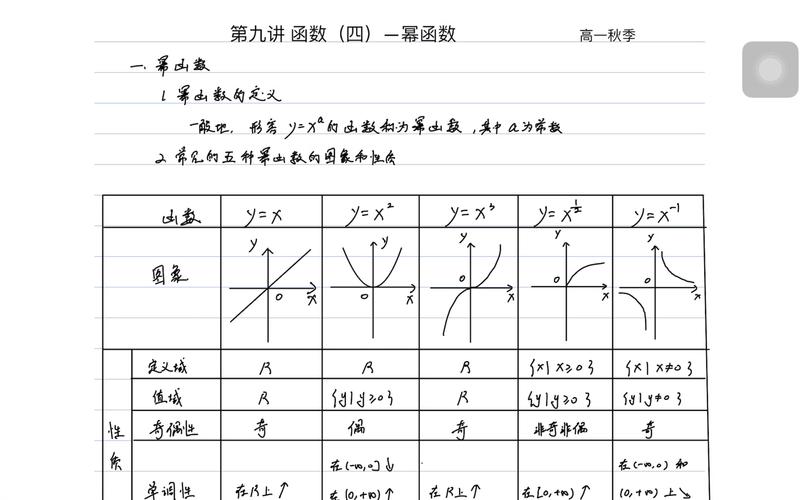 第九讲 函数（四）—幂函数 高一秋季
一. 幂函数
1. 幂函数的定义
一般地，形容 y=x^a的函数称为幂函数，其中a为常数
2. 常见的五种幂函数的图象和性质
函数 y=x y=x^2 y=x^3 y=x^{1/2} y=x^{-1}
图象 y o x y o x y o x y o x y o x
性质
定义域 R R R {x|x≥0} {x|x≠0}
值域 R {y|y≥0} R {y|y≥0} {y|y≠0}
奇偶性 奇 偶 奇 非奇非偶 奇
单调性 在R上↑ 在(-∞,0]↓ 在(0,+∞)↑ 在R上↑ 在[0,+∞)↑ 在(-∞,0) 和 (0,+∞) 上↘